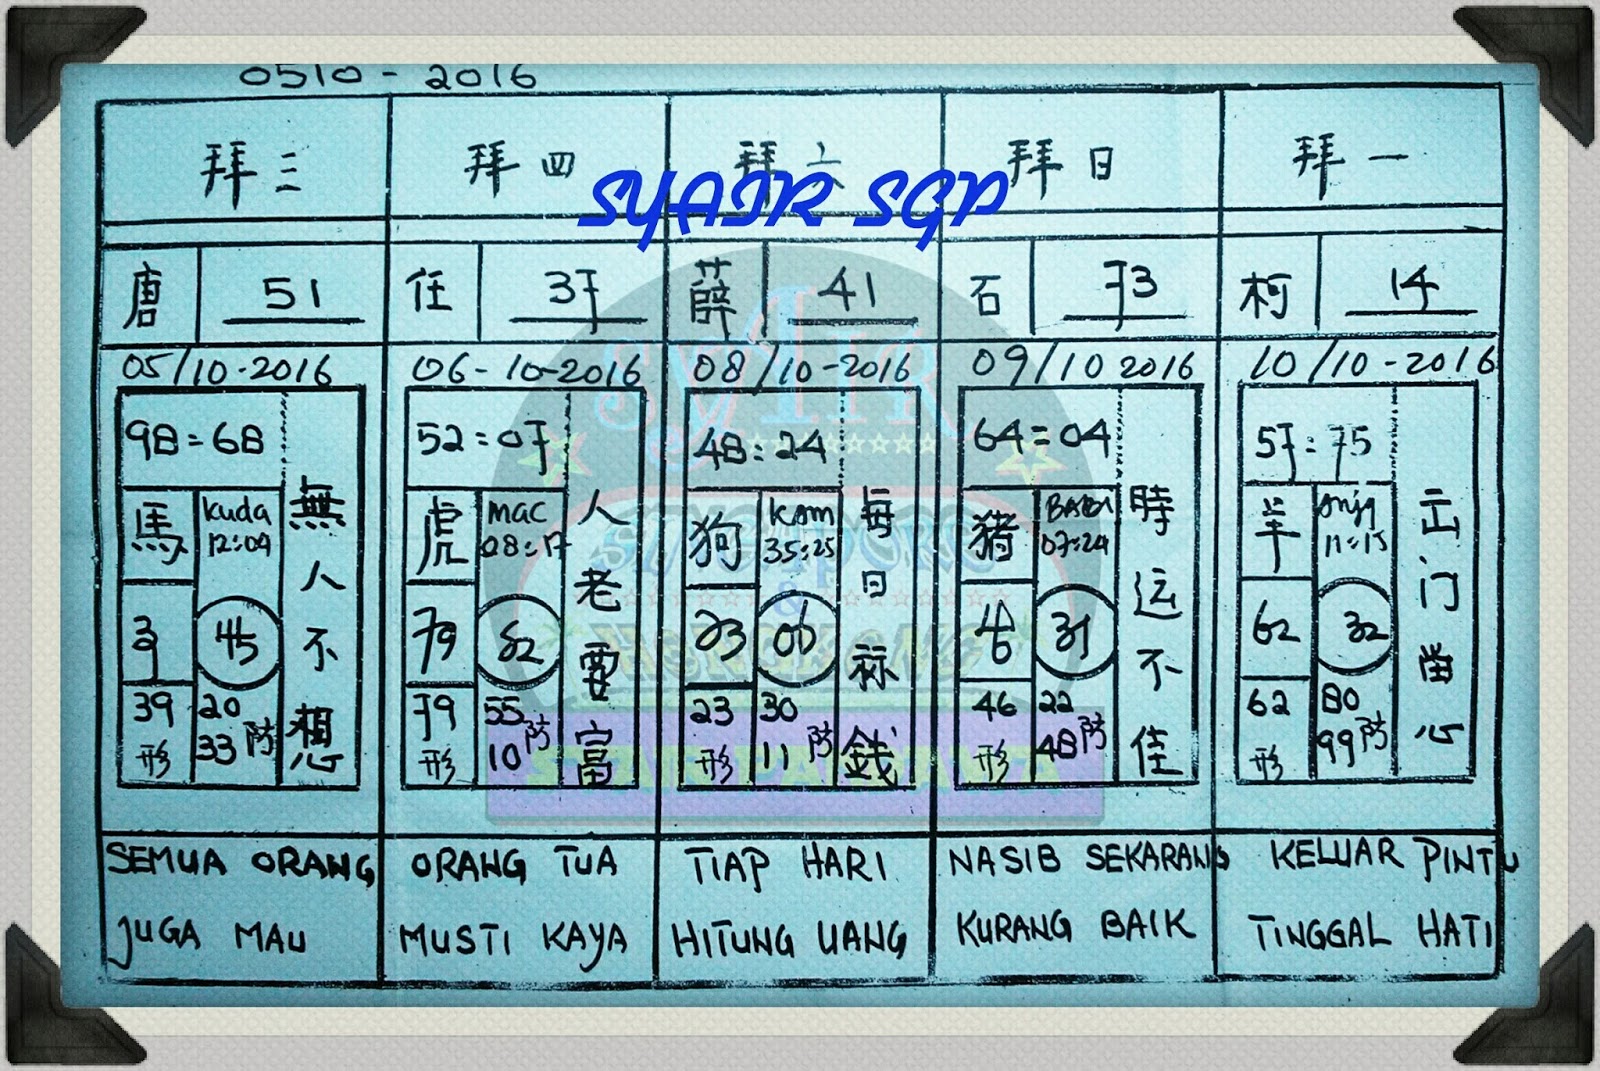 0510 - 2016
拜三 拜四 拜六 拜日 拜一
SYAIR SGP
唐 51 任 37 薛 41 石 73 柯 14
05/10-2016 06-10-2016 08/10-2016 09/10 2016 10/10-2016
98=68 52:07 48:24 64=04 57:75
馬 Kuda 12:09
無人不想
45
39 20
形 33 防
虎 mac 08:17
人老要富
79 62
79 55
形 10 防
狗 35:25
每日 錢
23 06
23 30
形 11 防
猪 BABI 07:24
時运不佳
46 31
46 22
形 48 防
羊 11:15
门 心
62 32
62 80
形 99 防
SEMUA ORANG ORANG TUA TIAP HARI NASIB SEKARANG KELUAR PINTU
JUGA MAU MUSTI KAYA HITUNG UANG KURANG BAIK TINGGAL HATI
SYAIR
SINGAPORE
&
HONGKONG